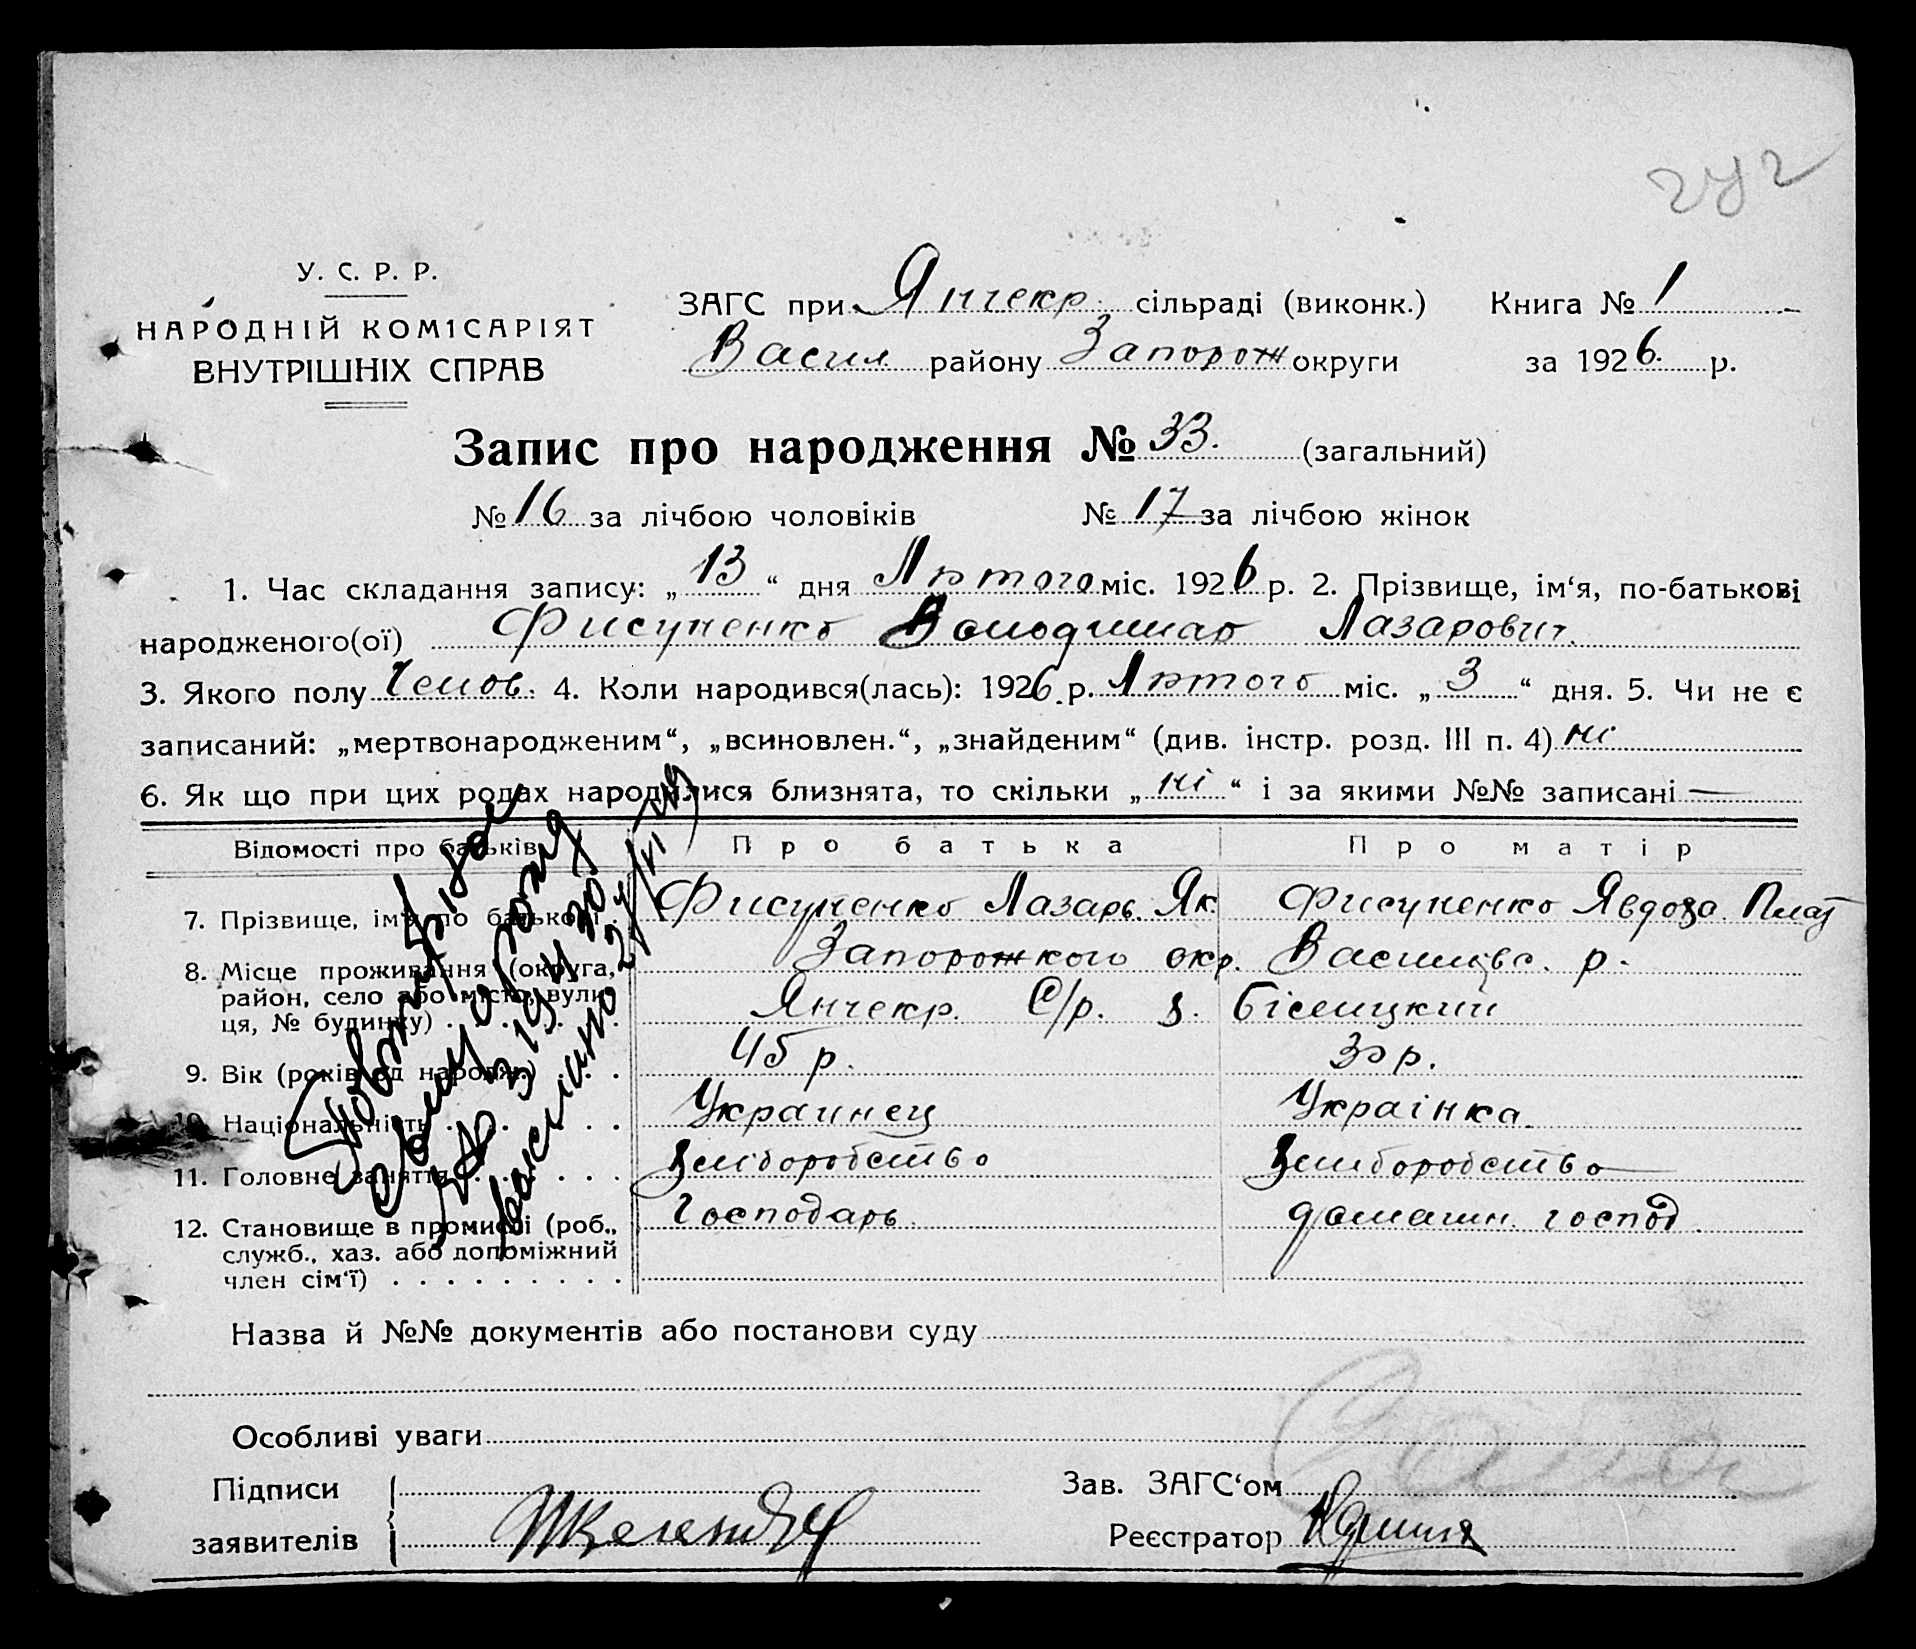 242
У. С. Р. Р.
НАРОДНІЙ КОМІСАРІЯТ
ВНУТРІШНІХ СПРАВ
ЗАГС при Янчекр. сільраді (виконк.) Книга № 1
Васил. району Запорож округи за 1926. р.
Запис про народження № 33. (загальний)
№ 16 за лічбою чоловіків № 17 за лічбою жінок
1. Час складання запису: „13“ дня Лютого міс. 1926 р. 2. Прізвище, ім‘я, по-батькові
народженого(ої) Фисуненко Володимир Лазарович.
3. Якого полу Чолов. 4. Коли народився(лась): 1926. р. Лютого міс. „3“ дня. 5. Чи не є
записаний: „мертвонародженим“, „всиновлен.“, „знайденим“ (див. інстр. розд. III п. 4) ні
6. Як що при цих родах народилися близнята, то скільки „ні“ і за якими №№ записані —
Відомості про батьків Про батька Про матір
7. Прізвище, ім‘я, по батькові . Фисуненко Лазарь Як. Фисуненко Явдоха Плат
8. Місце проживання (округа, Запорожкого окр. Василівс. р.
район, село або місто, вули-
ця, № будинку) . . . Янчекр. С/р. х. Білицкий
9. Вік (років од народж. . . . 45 р. 30 р.
10. Національність . . . Украинец Українка
11. Головне заняття . . . Хліборобство Хлиборобство
12. Становище в промислі (роб., Господарь. домашн. господ.
служб., хаз. або допоміжний
член сім‘ї) . . . . . . . . .
Назва й №№ документів або постанови суду
Особливі уваги
Підписи
заявителів
Зав. ЗАГС‘ом
Реєстратор